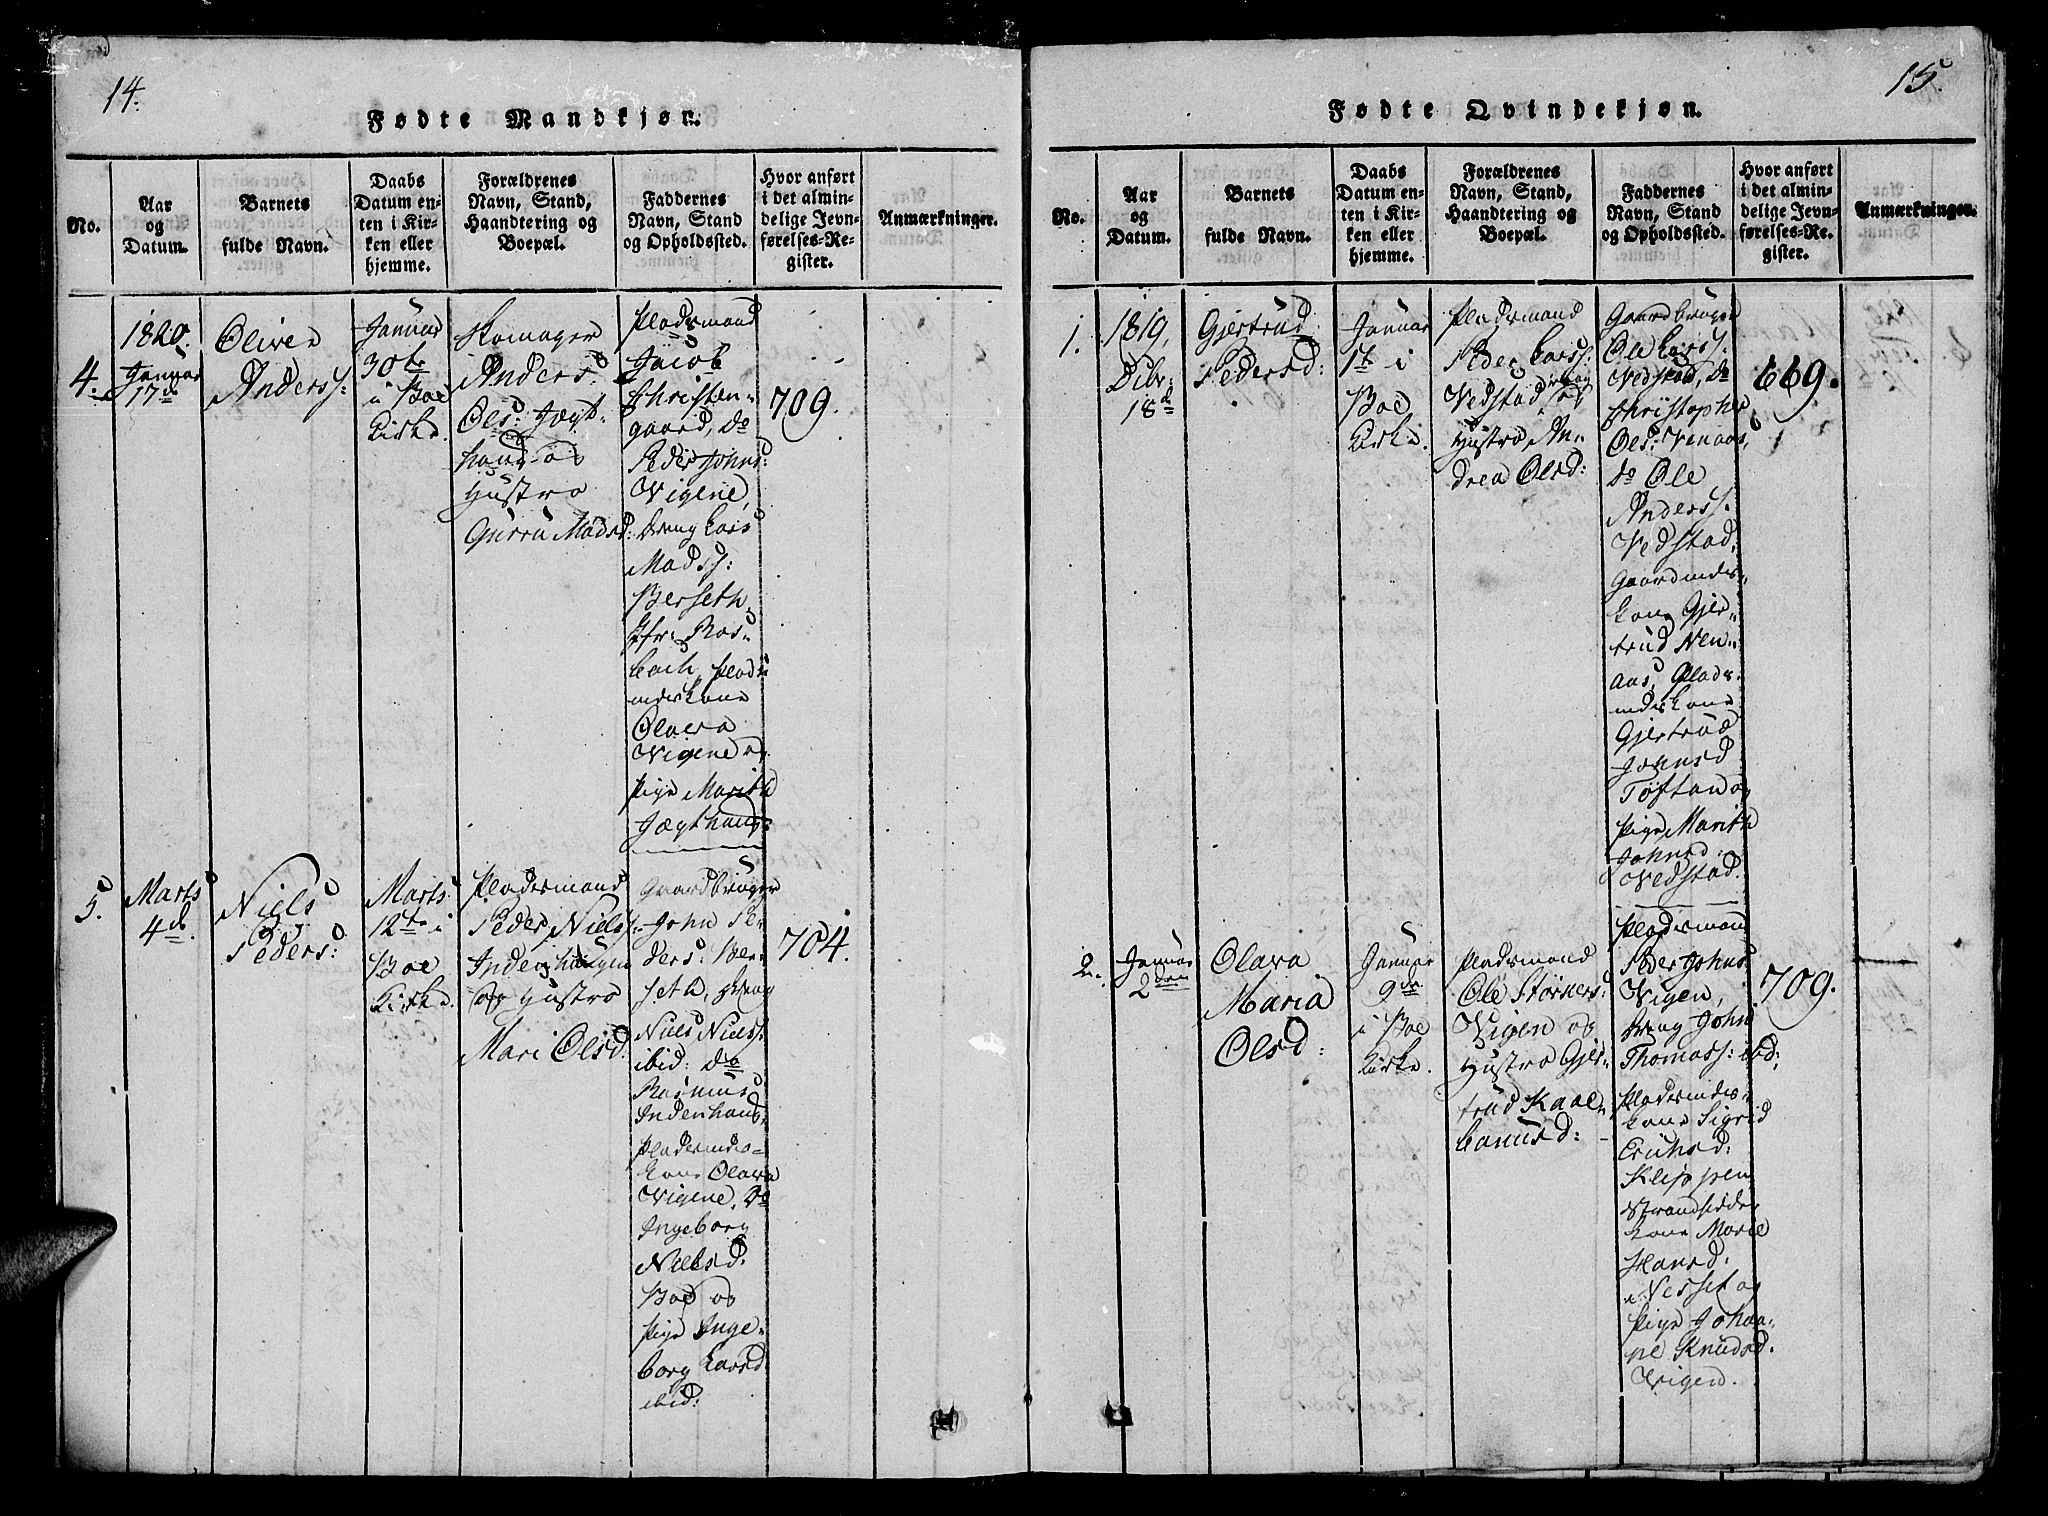 14.
Fødte Mandkjøn.
No.
Aar
og
Datum.
Barnets
fulde Navn.
Daabs
Datum en-
ten i Kir-
ken eller
hjemme.
Forældrenes
Navn, Stand,
Haandtering og
Boepæl.
Faddernes
Navn, Stand
og Opholdssted.
Hvor anført
i det almin-
delige Jevn-
førelses-Re-
gister.
Anmærkninger.
4.
1820.
Januar
17de
Oliver
Anderss:
Januar
30te
i Boe
Kirke.
Skomager
Anders
Ols: Jægt-
haug og
Hustro
Gurru Madsd:
Pladsmand
Jacob
Christen-
gaard, do
Peder Johns:
Vigene,
Dreng Lars
Madss:
Berseth,
Jfr: Ros-
bach, Plads-
mdskone
Olava
Vigene og
Pige Marith
Jægthaug.
709.
5.
Marts
4de
Niels
Peders:
Marts
12te i
Boe
Kirke.
Pladsmand
Peder Niels:
Indenhaugen
og Hustro
Mari Olsd:
Gaardbruger
John Pe-
ders: Ber-
seth, Dreng
Niels Nielss:
ibid: do
Rasmus
Indenhaug,
Pladsmds-
kone Olava
Vigene, do
Ingeborg
Nielsd.
Boe og
Pige Inge-
borg Larsd:
ibid:
704.
15.
Fødte Qvindekjøn.
No.
Aar
og
Datum.
Barnets
fulde Navn.
Daabs
Datum en-
ten i Kir-
ken eller
hjemme.
Forældrenes
Navn, Stand,
Haandtering og
Boepæl.
Faddernes
Navn, Stand
og Opholdssted.
Hvor anført
i det almin-
delige Jevn-
førelses-Re-
gister.
Anmærkninger.
1.
1819,
Dcbr:
18de
Gjertrud
Pedersd:
Januar
1te i
Boe
Kirke.
Pladsmand
Peder Larss:
Vedstad og
Hustro An-
drea Olsd:
Gaardbruger
Ole Larss.
Vedstad, do
Christopher
Ols: Venaas,
do Ole
Anderss.
Vedstad.
Gaardmds-
kone Gjer-
trud Ven-
aas, Plads-
mdskone
Gjertrud
Johnsd
Toftan og
Pige Marith
Johnsd:
Vedstad.
669.
2.
Januar
2den
Olava
Maria
Olsd:
Januar
9de
i Boe
Kirke.
Pladsmand
Ole Størkers:
Vigen og
Hustro Gjer-
trud Kaal-
banusd:
Pladsmand
Peder Johns:
Vigen,
Dreng John
Thomass: ibid:
Pladsmds-
kone Sigrid
Erichsd:
Kleppen
Strandsidder
kone Marie
Hansd:
Nesset og
Pige Johan-
ne Knudsd.
Vigen.
709.